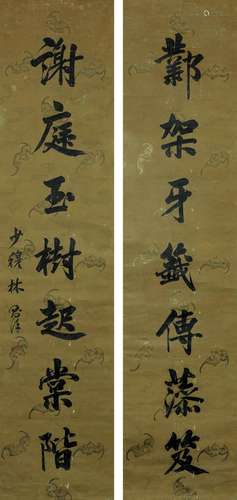 鄴架牙籤傳藻笈
謝庭玉樹起棠階
少穆林則徐